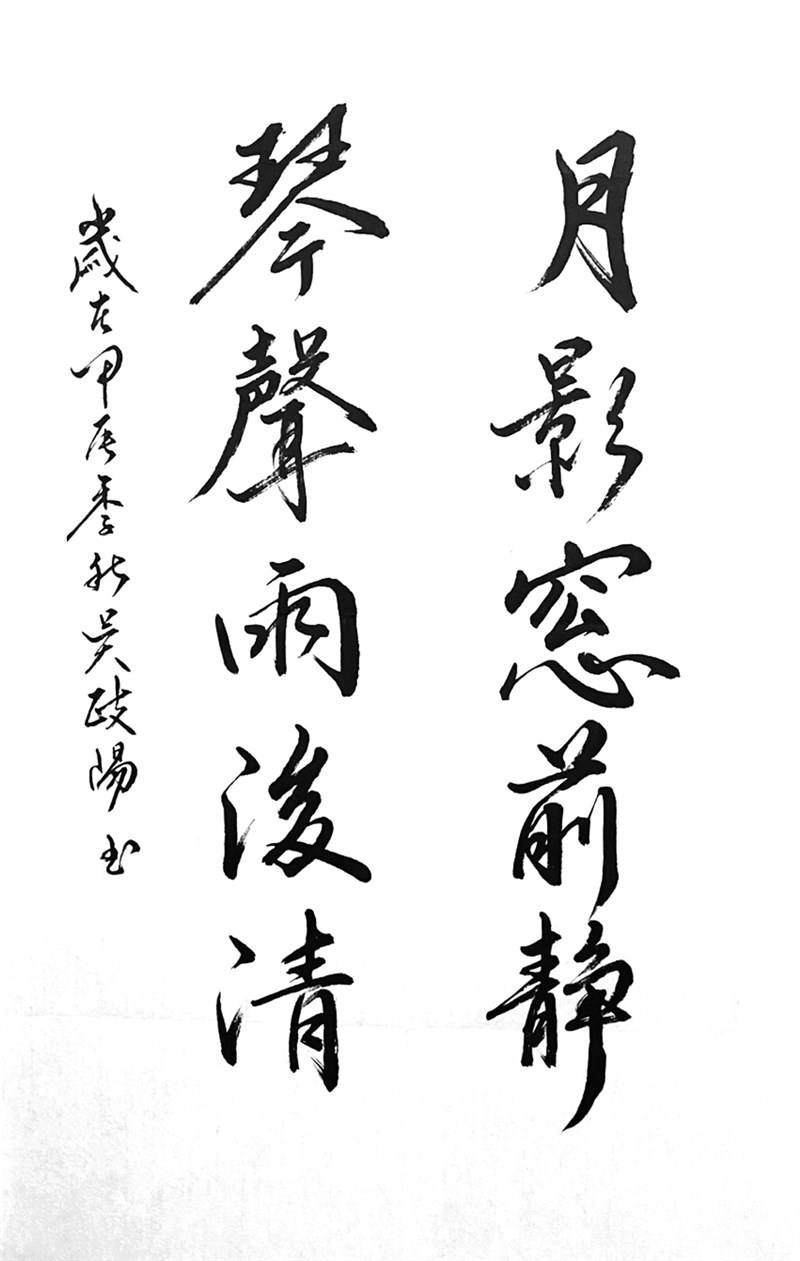 月影窓前静
琴聲雨後清
歲在甲辰季秋吳政陽書